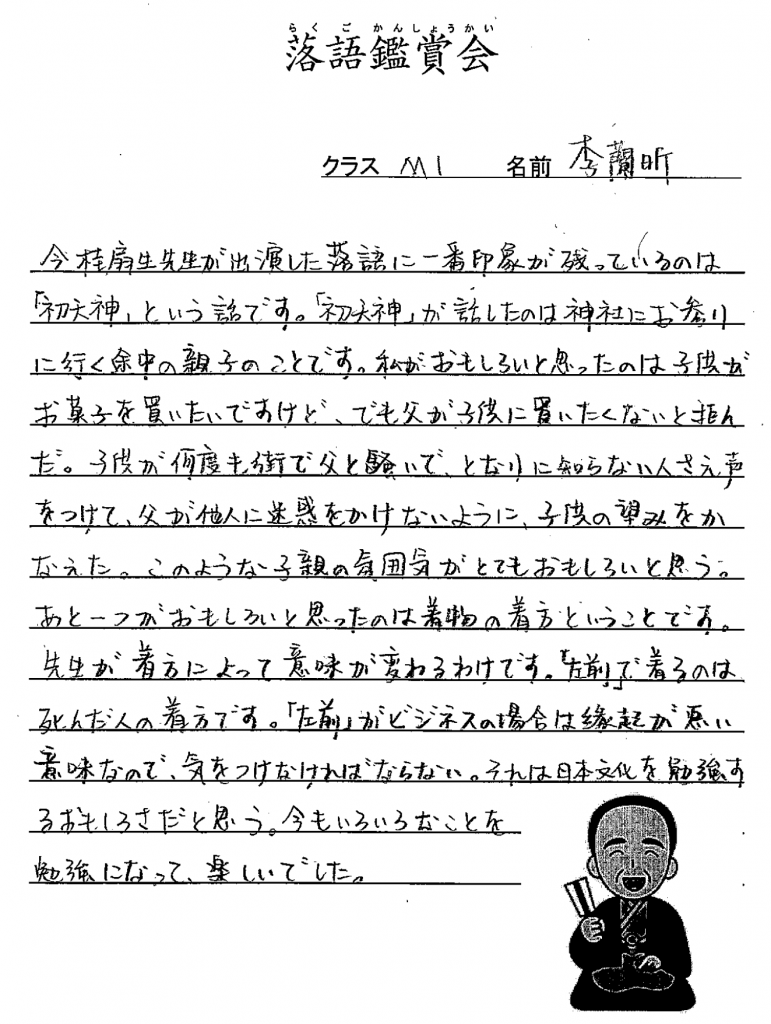 らくごかんしょうかい
落語鑑賞会
クラス M1 名前 李蘭昕
今桂扇生先生が出演した落語に一番印象が残っているのは
「初天神」という話です。「初天神」が話したのは神社にお参り
に行く途中の親子のことです。私がおもしろいと思ったのは子供が
お菓子を買いたいですけど、でも父が子供に買いたくないと拒ん
だ。子供が何度も街で父と騒いで、となりに知らない人さえ声
をつけて、父が他人に迷惑をかけないように、子供の望みをか
なえた。このような子親の気囲気がとてもおもしろいと思う。
あと一つがおもしろいと思ったのは着物の着方ということです。
先生が着方によって意味が変わるわけです。「左前」で着るのは
死んだ人の着方です。「左前」がビジネスの場合は縁起が悪い
意味なので、気をつけなければならない。それは日本文化を勉強す
るおもしろさだと思う。今もいろいろなことを
勉強になって、楽しいでした。